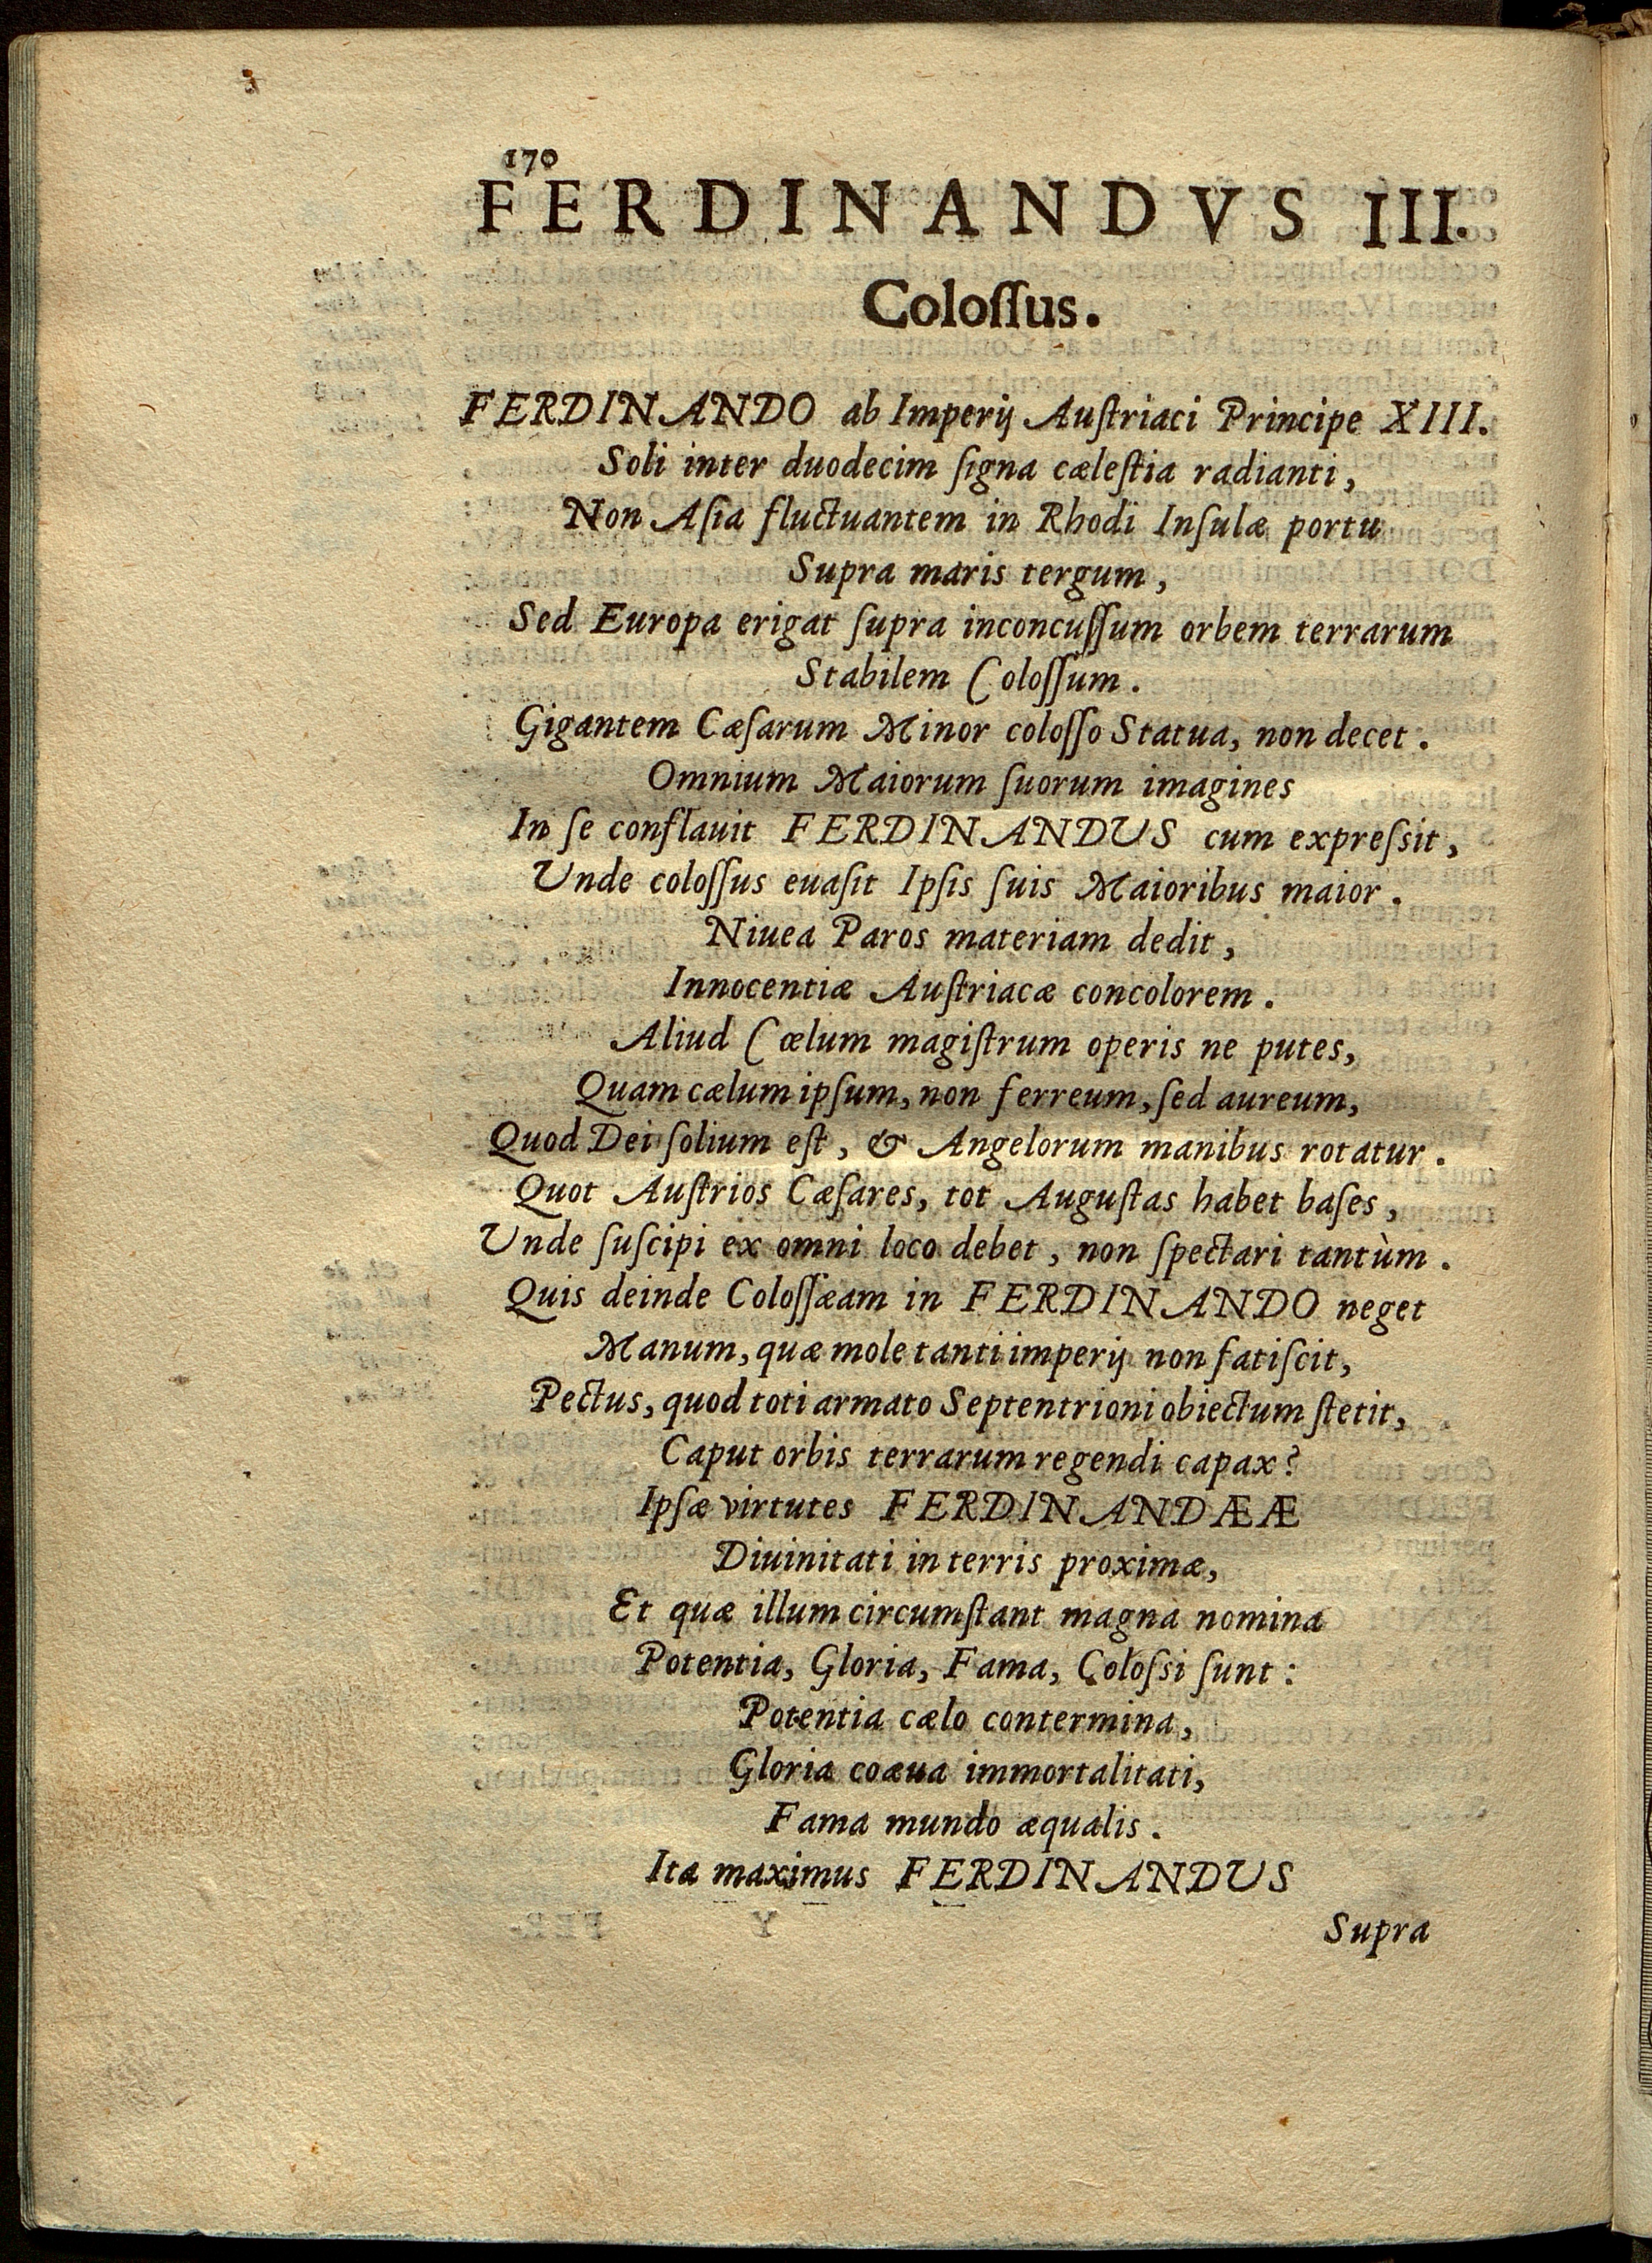 170
FERDINANDVS III.
Coloſſus.
FERDINANDO ab Imperij Auſtriaci Principe XIII.
Soli inter duodecim ſigna cæleſtia radianti,
Non Aſia fluctuantem in Rhodi Inſulæ portu
Supra maris tergum,
Sed Europa erigat ſupra inconcuſſum orbem terrarum
Stabilem Coloſſum.
Gigantem Cæſarum Minor coloſſo Statua, non decet.
Omnium Maiorum ſuorum imagines
In ſe conflauit FERDINANDUS cum expreſsit,
Unde coloſſus euaſit Ipſis ſuis Maioribus maior.
Niuea Paros materiam dedit,
Innocentiæ Auſtriacæ concolorem.
Aliud Cœlum magiſtrum operis ne putes,
Quam cælum ipſum, non ferreum, ſed aureum,
Quod Dei ſolium eſt, & Angelorum manibus rotatur.
Quot Auſtrios Cæſares, tot Auguſtas habet baſes,
Unde ſuſcipi ex omni loco debet, non ſpectari tantùm.
Quis deinde Coloſſæam in FERDINANDO neget
Manum, quæ mole tanti imperij non fatiſcit,
Pectus, quod toti armato Septentrioni obiectum ſtetit,
Caput orbis terrarum regendi capax?
Ipſæ virtutes FERDINANDÆÆ
Diuinitati in terris proximæ,
Et quæ illum circumſtant magna nomina
Potentia, Gloria, Fama, Coloſsi ſunt:
Potentia cælo contermina,
Gloria coæua immortalitati,
Fama mundo æqualis.
Ita maximus FERDINANDUS
Supra